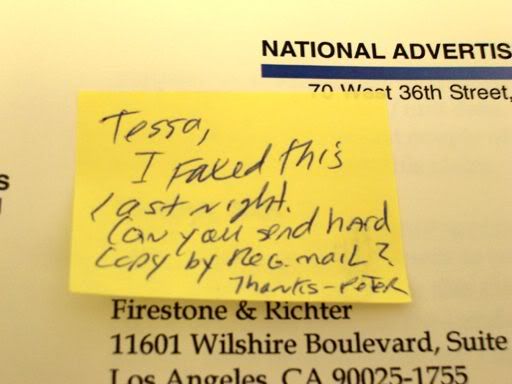 NATIONAL ADVERTIS
70 West 36th Street,
Tessa,
I Faxed this
last night.
Can you send hard
copy by Reg. mail?
Thanks - Peter
Firestone & Richter
11601 Wilshire Boulevard, Suite
Los Angeles, CA 90025-1755